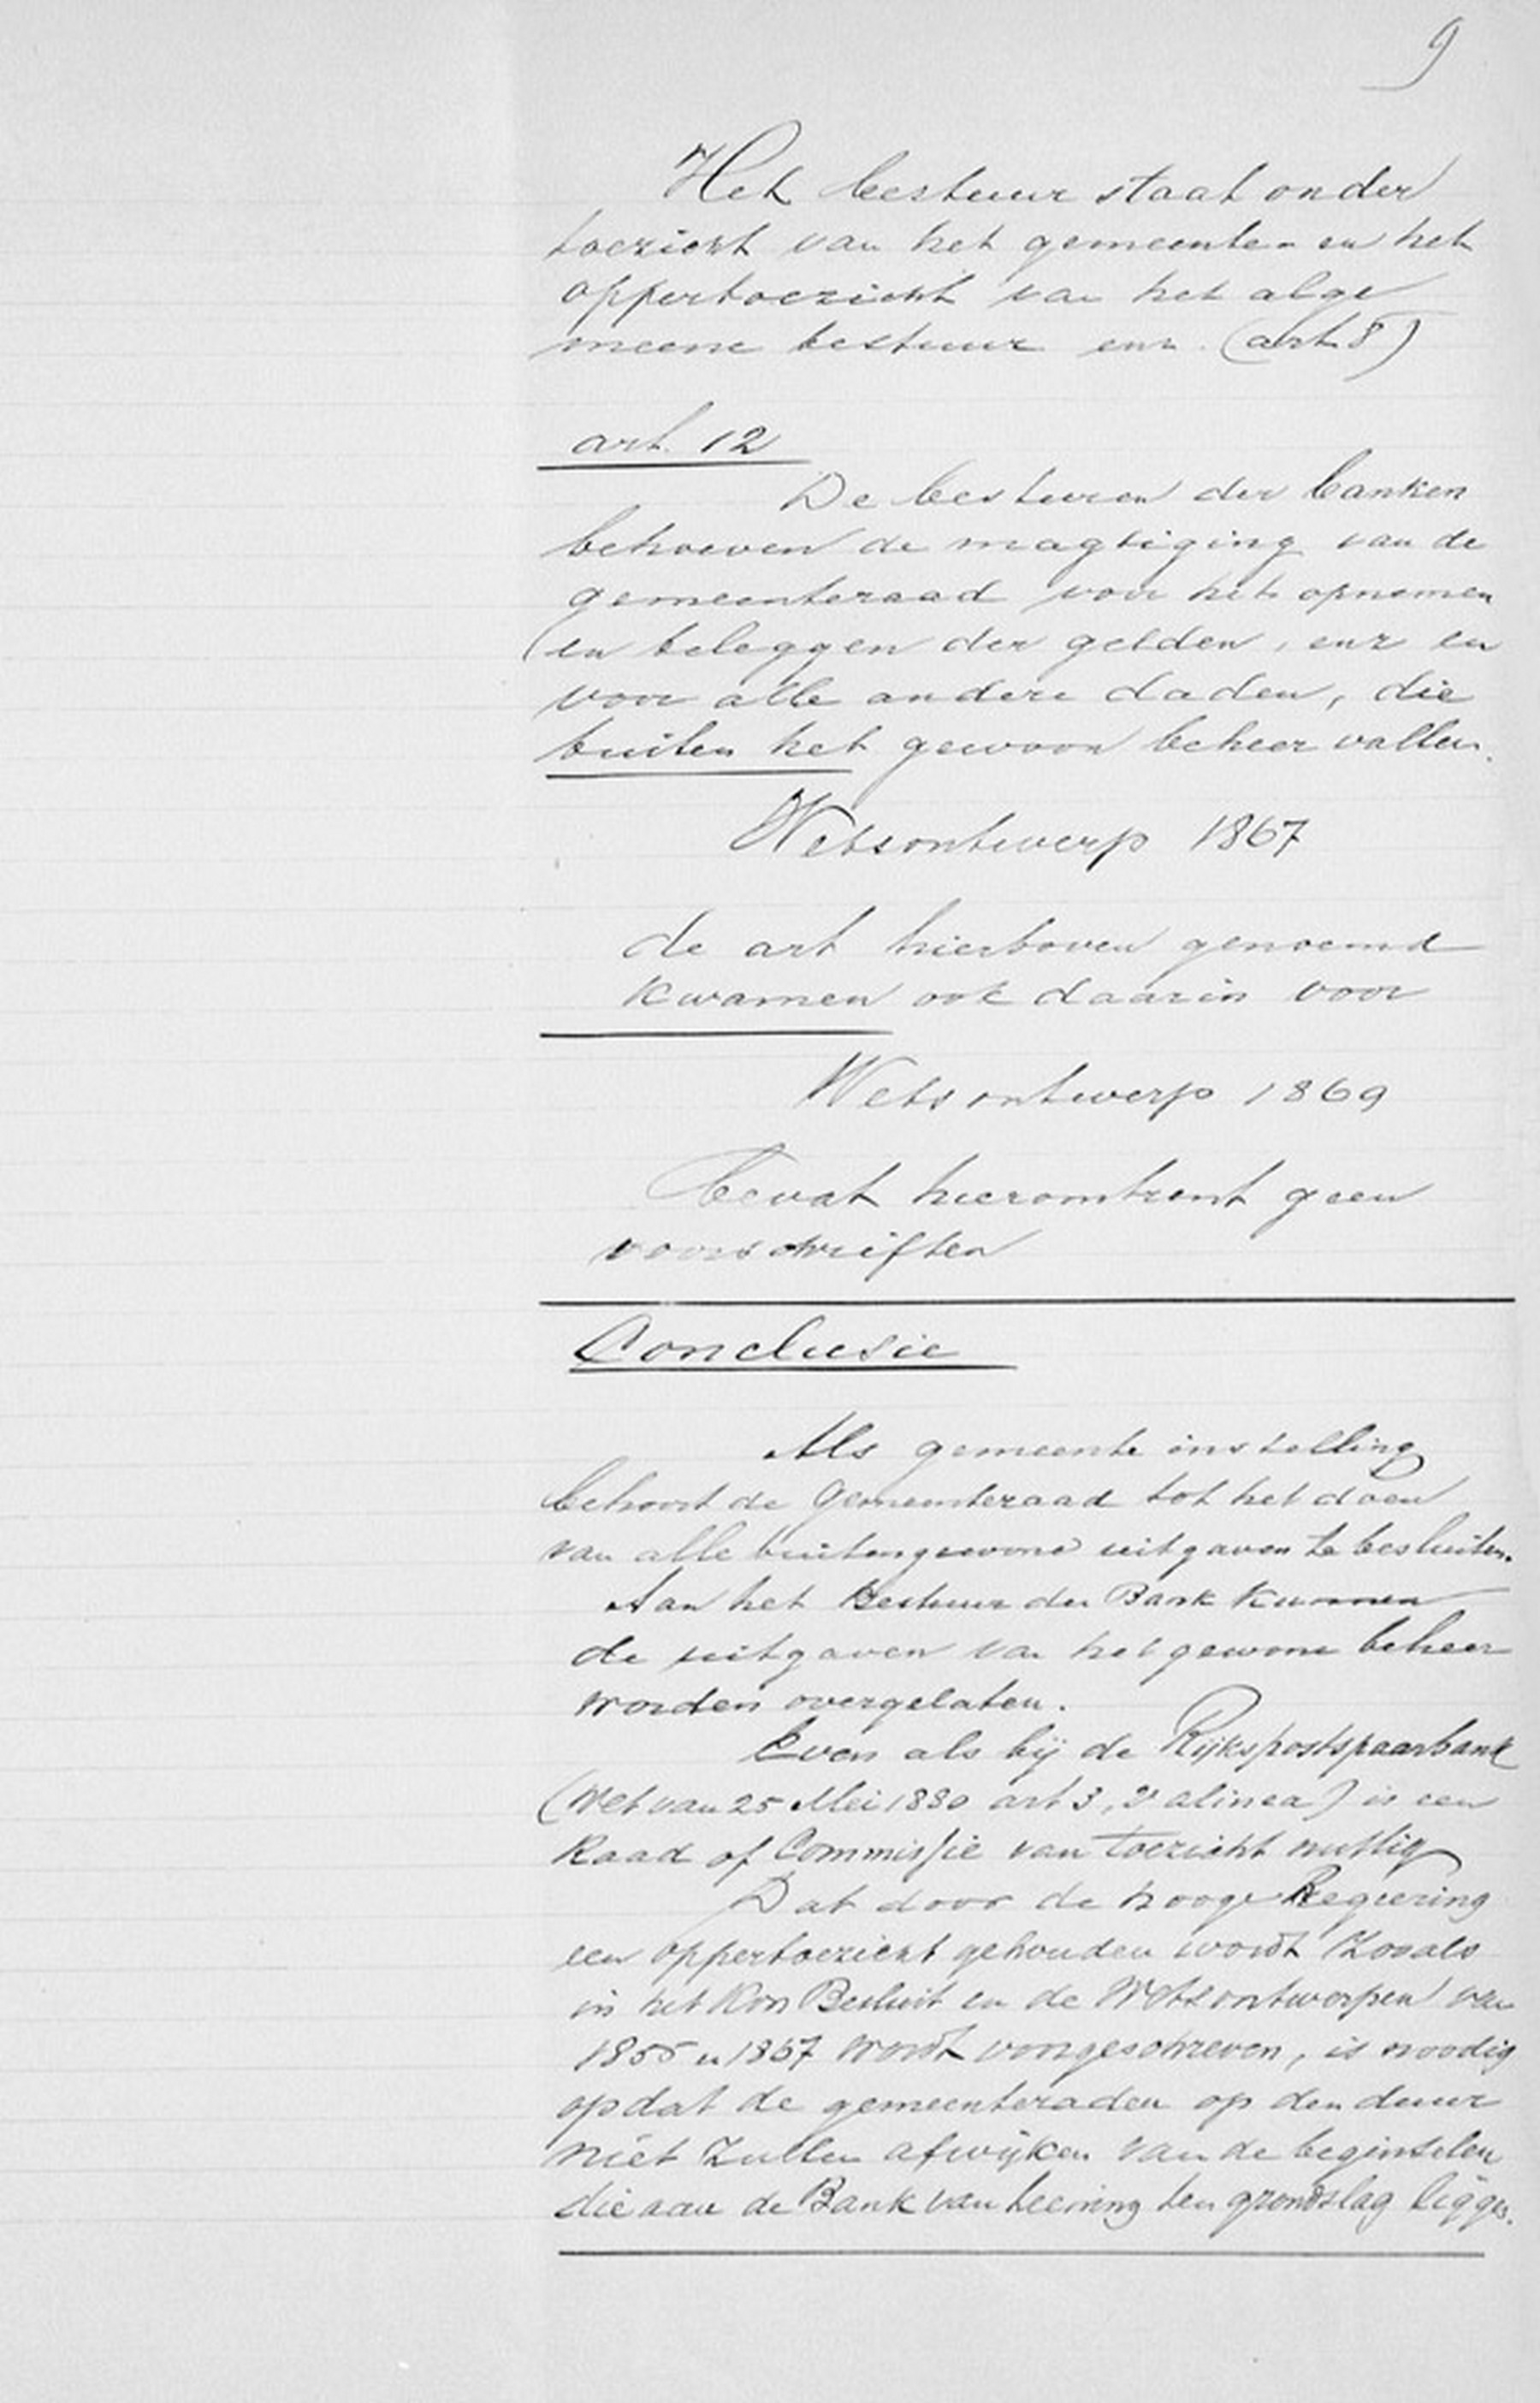 9
Het bestuur staat onder
toezicht van het gemeente- en het
oppertoezicht van het alge
meene bestuur enz. (art. 8)
art. 12
De besturen der banken
behoeven de magtiging van de
gemeenteraad voor het opnemen
en beleggen der gelden, enz en
voor alle andere daden, die
buiten het gewoon beheer vallen.
Wetsontwerp 1867
de art hierboven genoemd
kwamen ook daarin voor
Wetsontwerp 1869
bevat hieromtrent geen
voorschriften
Conclusie
Als gemeente instelling
behoort de Gemeenteraad tot het doen
van alle buitengewone uitgaven te besluiten.
Aan het Bestuur der Bank kunnen
de uitgaven van het gewone beheer
worden overgelaten.
Even als bij de Rijkspostspaarbank
(Wet van 25 Mei 1880 art 3, 2e alinea) is een
Raad of Commissie van toezicht nuttig
Dat door de hooge Regeering
een oppertoezicht gehouden wordt zooals
in het Kon Besluit en de Wetsontwerpen van
en 1867 wordt voorgeschreven, is noodig
opdat de gemeenteraden op den duur
niet zullen afwijken van de beginselen
die aan de Bank van leening ten grondslag liggen.